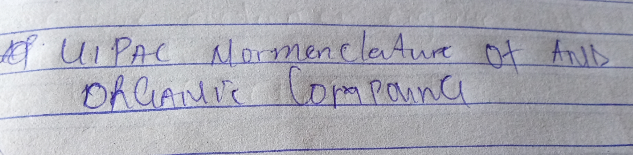 UIPAC Normenclature Of AND
ORGANIC Compound